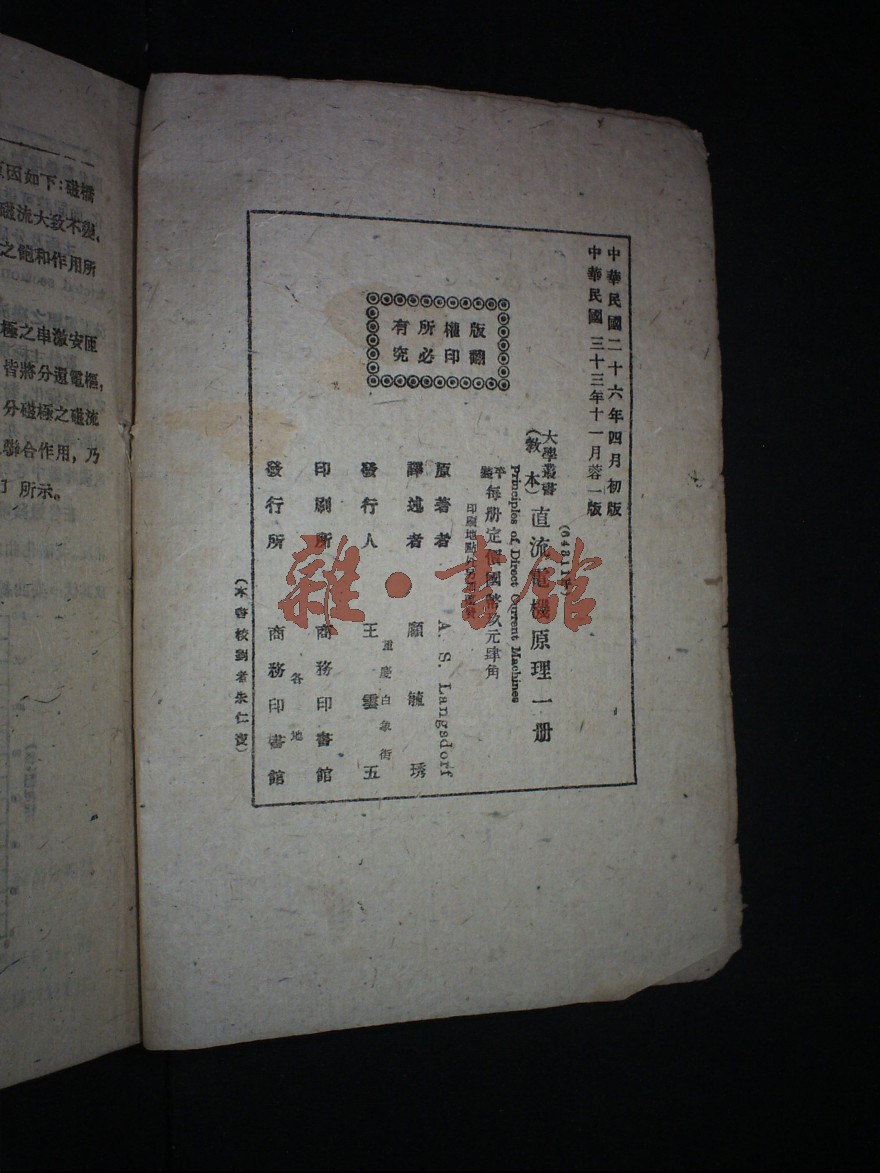 中華民國二十六年四月初版
中華民國三十三年十一月蓉一版
版權所有
翻印必究
(64811平)
大學叢書
(教本)
直流電機原理一册
Principles of Direct Current Machines
每册定價國幣玖元肆角
印刷地點外另加運費
原著者 A. S. Langsdorf
譯述者 顧毓琇
重慶白象街
發行人 王雲五
印刷所 商務印書館
各地
發行所 商務印書館
(本書校對者朱仁寶)
原因如下:磁橋
磁流大致不變,
之飽和作用所
極之串激安匝
皆將分還電樞,
分磁極之磁流
聯合作用,乃
所示。
雜·書館